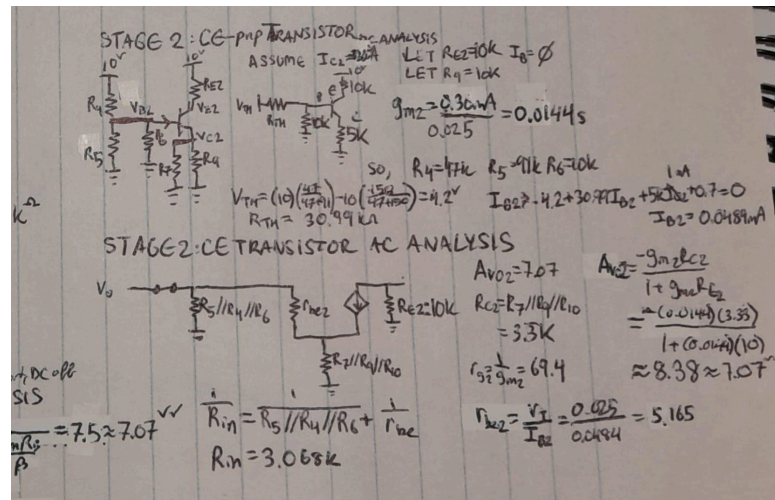 STAGE 2: CE-pnp TRANSISTOR AC ANALYSIS
ASSUME IC2=
LET RE2=10k IB=∅
LET R9=10k
10V
10V
10V
R4
VB2
RE2
VE2
VC2
R5
R6
R7
R9
VTH
RTH
10k
B
e
10k
C
5K
gm2=0.36mA/0.025=0.0144s
SO, R4=47k R5=91k R6=10k
VTH=(10)(47/47+91)-10(150/47+150)=4.2V
RTH= 30.99kΩ
1mA
IB2⇒-4.2+30.99IB2+5kIB2+0.7=0
IB2=0.0489mA
kΩ
STAGE 2: CE TRANSISTOR AC ANALYSIS
R5//R4//R6
rbe2
RE2=10k
R7//R9//R10
Avo2=7.07
RC2=R7//R9//R10
=3.3K
rg2=1/gm2=69.4
Avo2=-gm2RC2/1+gm2RE2
=-(0.0144)(3.33)/1+(0.0144)(10)
≈8.38≈7.07V
DC
SIS
=7.5≈7.07VV
β
1/Rin=1/R5//R4//R6+1/rbe
Rin=3.068k
rbe2=VT/IB2=0.025/0.0484=5.165